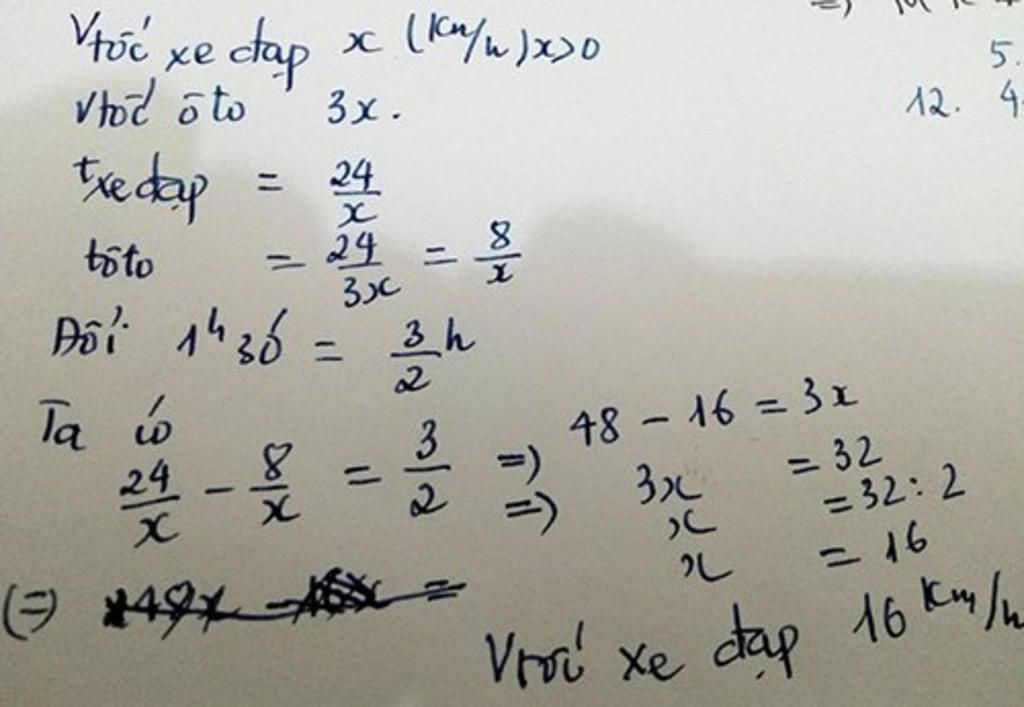 Vtốc xe đạp x (Km/h) x>0
Vtốc ôto 3x.
t xe đạp = 24/x
tôto = 24/3x = 8/x
Đổi 1h 30' = 3/2 h
Ta có
24/x - 8/x = 3/2 => 48 - 16 = 3x
=> 3x = 32
x = 32 : 2
x = 16
(=)
Vtốc xe đạp 16 Km/h
5.
12. 4